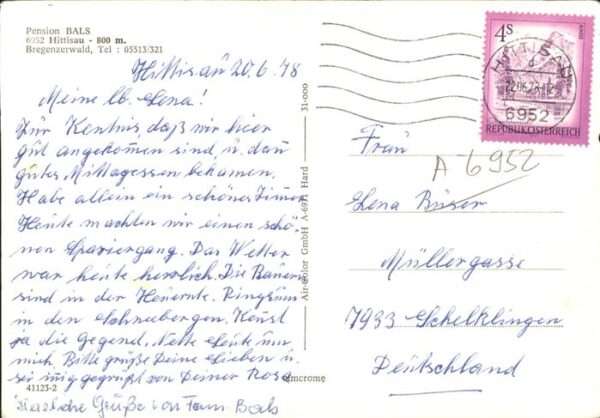 Pension BALS
6952 Hittisau - 800 m.
Bregenzerwald, Tel : 05513/321
Hittisau 20.6.78
Meine lb. Lena!
Zur Kentnis, daß wir hier
gut angekomen sind u. dan
gutes Mittagessen bekamen.
Habe allein ein schönes Zimer
Heute machten wir einen schö-
nen Spaziergang. Das Wetter
war heute herrlich. Die Bauern
sind in der Heuernte. Ringsum
in den Schneebergen, Kenst
ja die Gegend, Nette Leute um
mich. Bitte grüße Deine Lieben u.
sei inig gegrüßt von Deiner Rosa
41123-2
Herzliche Grüße von Fam Bals
31-000
Air-Color GmbH A-6971 Hard
4S
HITTISAU
6952
REPUBLIK ÖSTERREICH
Frau
A-6952
Lena
Müllergasse
7933 Schelklingen
Deutschland